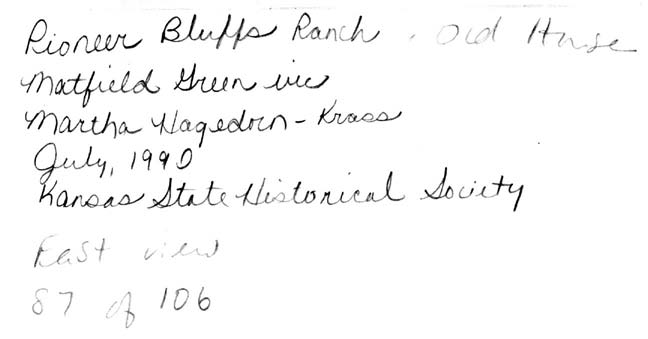 Pioneer Bluffs Ranch . Old House
Matfield Green vic
Martha Hagedorn-Krass
July, 1990
Kansas State Historical Society
East view
87 of 106